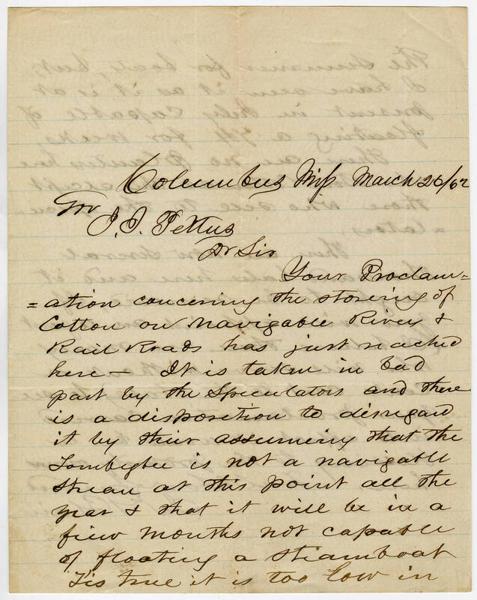 Columbus Mifs March 26/62
Gov
J. J. Pettus
Dr Sir
Your Proclam=
=ation concerning the storeing of
Cotton on navigable Rivers &
Rail Roads has just reached
here— It is taken in bad
part by the Speculators and there
is a disposition to disregard
it by their assumeing that the
Tombegbee is not a navigable
stream at this point all the
year & that it will be in a
few months not capable
of floating a steamboat
Tis true it is too low in